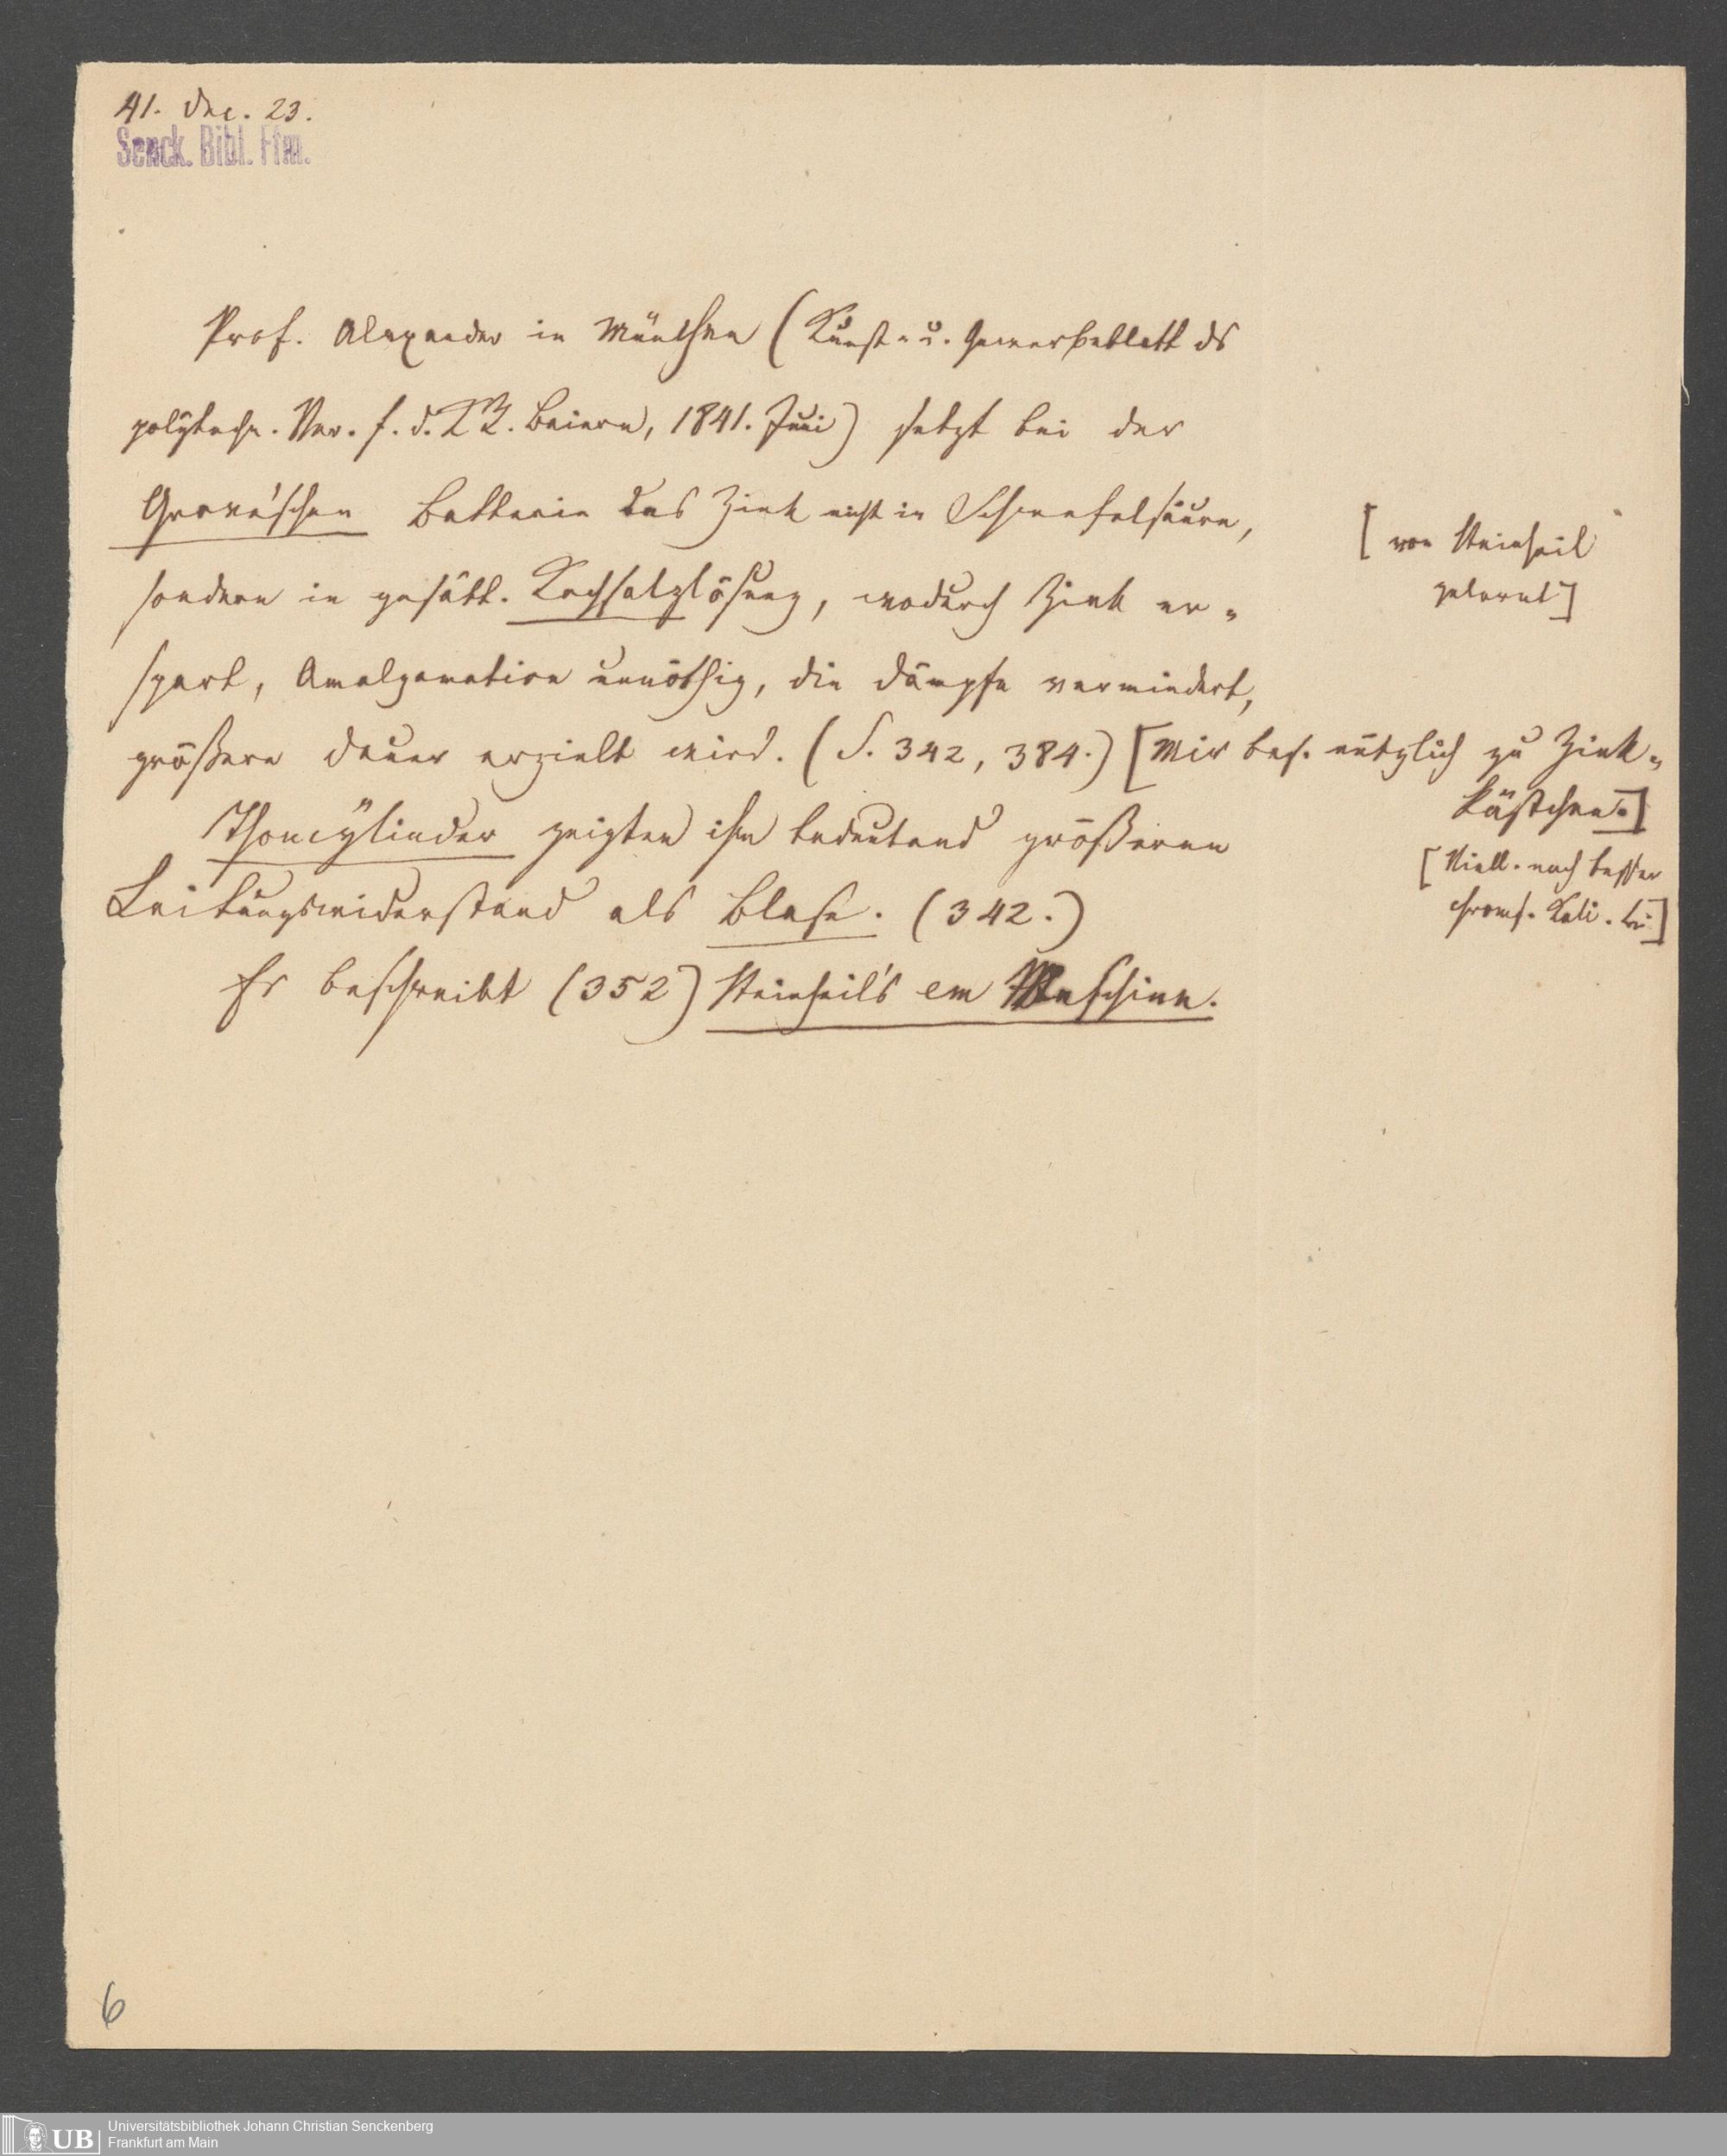 41. Dec. 23.
Senck. Bibl. Ffm.
Prof. Alexander in München (Kunst- u. Gewerbeblatt ds
polytechn. Ver. f. d. K. Baiern, 1841. Juni) setzt bei der
Grove'schen Batterie das Zink nicht in Schwefelsäure,
[von Steinheil
gelernt]
sondern in gesätt. Kochsalzlösung, wodurch Zink er-
spart, Amalgamation unnöthig, die Dämpfe vermindert,
größere Dauer erzielt wird. (S. 342, 384.) [Mir bes. nützlich zu Zink-
kästchen.]
Thoncylinder zeigten ihm bedeutend größeren
[Viell. noch besser
chroms. Kali.]
Leitungswiderstand als Blase. (342.)
Er beschreibt (352) Steinheil's em Maschine.
6
UB
Universitätsbibliothek Johann Christian Senckenberg
Frankfurt am Main